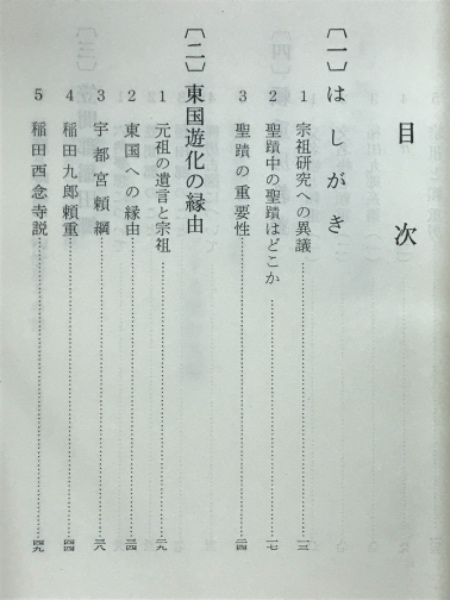 目次
〔一〕はしがき
1 宗祖研究への異議……一三
2 聖蹟中の聖蹟はどこか……一七
3 聖蹟の重要性……二四
〔二〕東国遊化の縁由
1 元祖の遺言と宗祖……二九
2 東国への縁由……三四
3 宇都宮頼綱……三八
4 稲田九郎頼重……四四
5 稲田西念寺説……四九